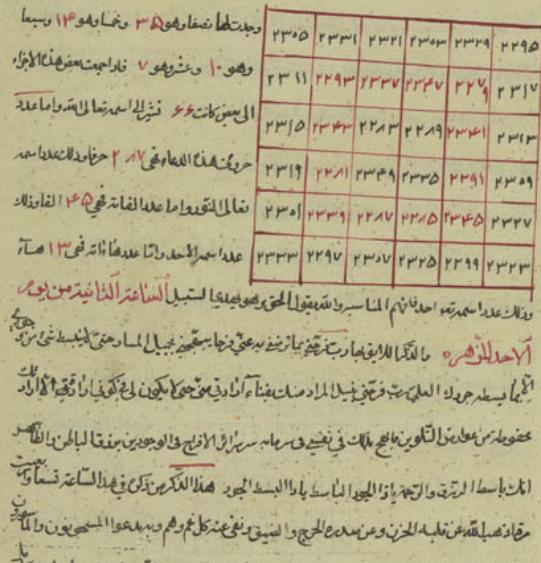 وجدت لها نصفا وهو ٣٥ وخمسا وهو ١٤ وسبعا
وهو ١٠ وعشرا وهو ٧ فاذا جمعت بعض هذه الاجزاء
الى بعض كانت ٦٦ تشير الى اسمه تعالى الله واما عدد
حروف هذا الدعاء فهي ٢٨٧ حرفا وذلك عدد اسمه
تعالى النور واما عدد الفاته فهي ٤٥ الفا وذلك
عدد اسم الاحد واما عدد هاءاته فهي ١٣ هاء
٢٣٠٥ ٢٣٣١ ٢٣٢١ ٢٣٠٣ ٢٣٢٩ ٢٢٩٥
٢٣١١ ٢٢٩٣ ٢٣٣٧ ٢٣٤٧ ٢٢٧٩ ٢٣١٧
٢٣١٥ ٢٣٤٣ ٢٢٨٣ ٢٢٨٩ ٢٣٤١ ٢٣١٣
٢٣١٩ ٢٢٨١ ٢٣٤٩ ٢٣٣٥ ٢٢٩١ ٢٣٠٩
٢٣٠١ ٢٣٣٩ ٢٢٨٧ ٢٢٨٥ ٢٣٤٥ ٢٣٢٧
٢٣٣٣ ٢٢٩٧ ٢٣٠٧ ٢٣٢٥ ٢٢٩٩ ٢٣٢٣
وذلك عدد اسمه تعو احد فافهم المناسبة والله يقول الحق وهو يهدي السبيل الساعة الثانية من يوم
الاحد للزهرة والذكر اللايق بها رب فرحني بما ترضى به عني فرحا بجميل المسار حتى لا ينبسط شئ من وجودي
الا بما بسطه جودك العلي رب فرحني بنيل المراد منك بفناء ارادتي حتى لا يكون لي في كوني ارادة الا ارادتك
محفوظة من عوارض التلوين في نفسي الافراح في الوجودين برفق الباطن والظاهر
انك باسط الرزق والرحمة يا ذا الجود الباسط يا ذا البسط والجود هذا الذكر من ذكره في هذا الساعة تسعا واربعين
مرة اذهب الله عن قلبه الحزن وعن صدره الحرج والضيق ونفى عنه كل غم وهم